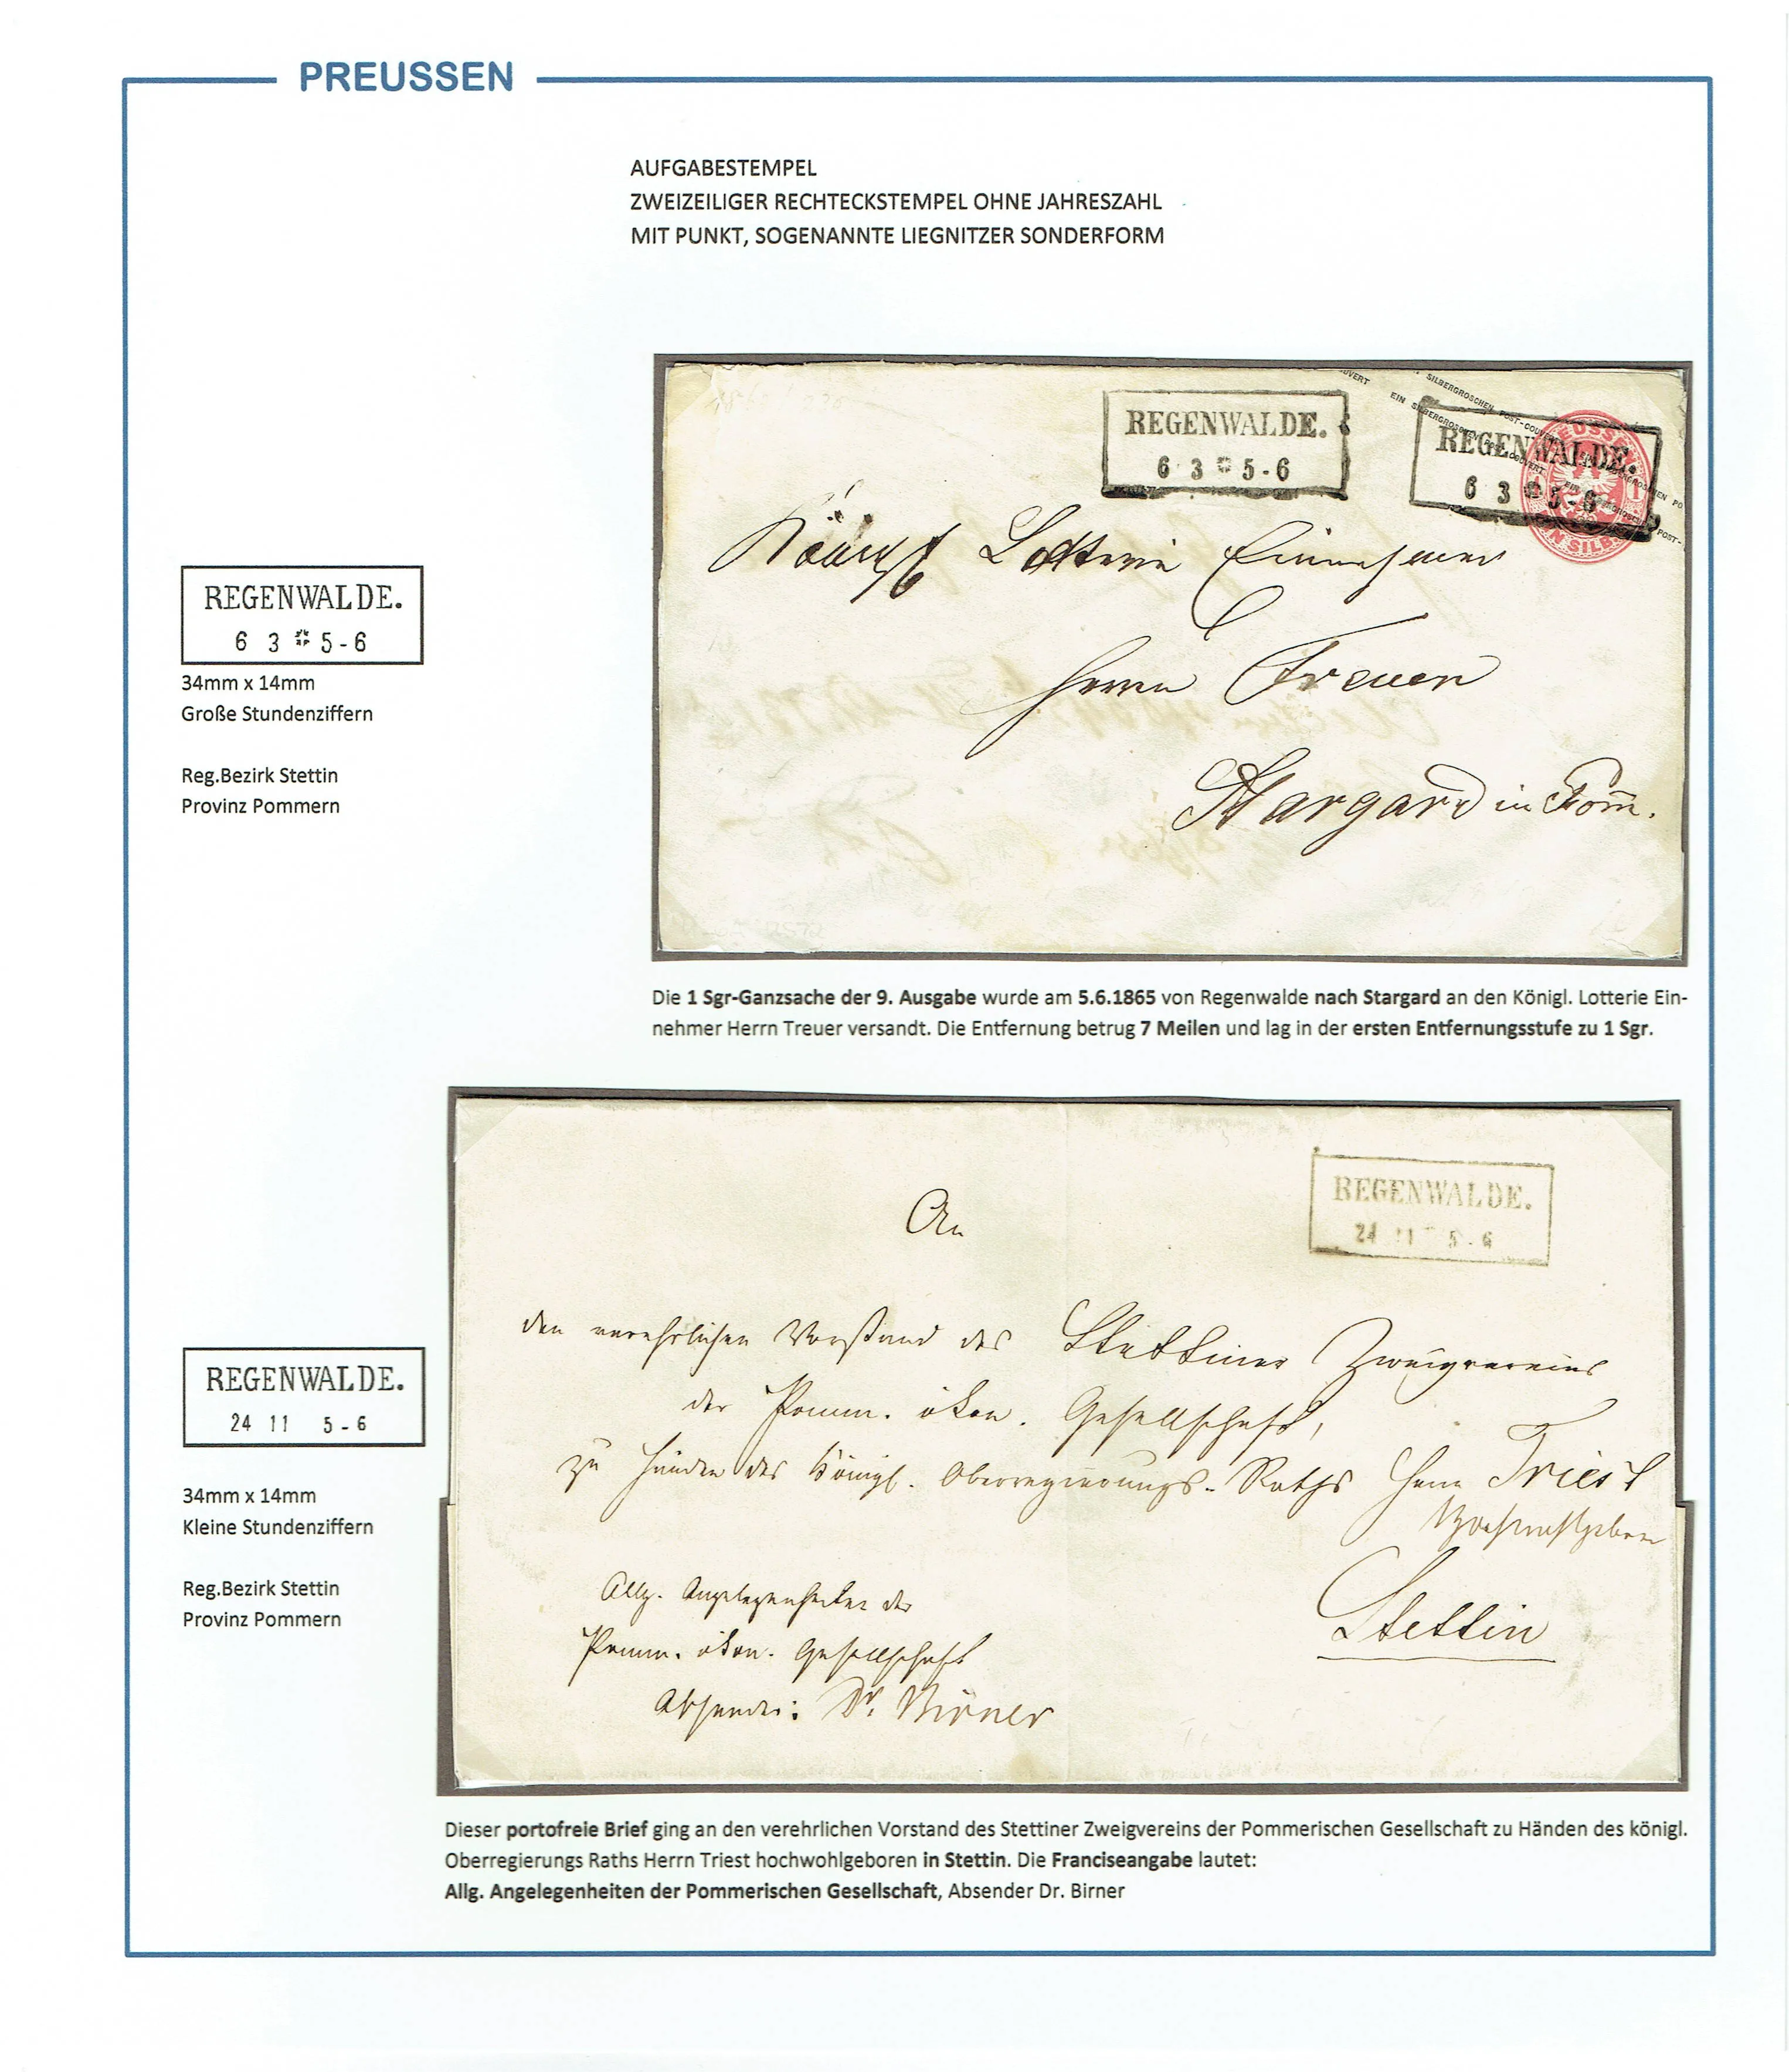 PREUSSEN
AUFGABESTEMPEL
ZWEIZEILIGER RECHTECKSTEMPEL OHNE JAHRESZAHL
MIT PUNKT, SOGENANNTE LIEGNITZER SONDERFORM
REGENWALDE.
6 3 * 5-6
REGENWALDE.
6 3 * 5-6
EIN SILBERGROSCHEN POST-COUVERT
Königl Lotterie Einnehmer
Herrn Treuer
Stargard in Pom̄.
REGENWALDE.
6 3 * 5-6
34mm x 14mm
Große Stundenziffern
Reg.Bezirk Stettin
Provinz Pommern
Die 1 Sgr-Ganzsache der 9. Ausgabe wurde am 5.6.1865 von Regenwalde nach Stargard an den Königl. Lotterie Ein-
nehmer Herrn Treuer versandt. Die Entfernung betrug 7 Meilen und lag in der ersten Entfernungsstufe zu 1 Sgr.
REGENWALDE.
24 11 5-6
An
den verehrlichen Vorstand des Stettiner Zweigvereins
der Pomm. ökon. Gesellschaft,
zu Händen des Königl. Oberregierungs-Raths Herrn Triest
Hochwohlgeboren
Stettin
Allg. Angelegenheiten der
Pomm. ökon. Gesellschaft
Absender: Dr. Birner
REGENWALDE.
24 11 5-6
34mm x 14mm
Kleine Stundenziffern
Reg.Bezirk Stettin
Provinz Pommern
Dieser portofreie Brief ging an den verehrlichen Vorstand des Stettiner Zweigvereins der Pommerischen Gesellschaft zu Händen des königl.
Oberregierungs Raths Herrn Triest hochwohlgeboren in Stettin. Die Franciseangabe lautet:
Allg. Angelegenheiten der Pommerischen Gesellschaft, Absender Dr. Birner